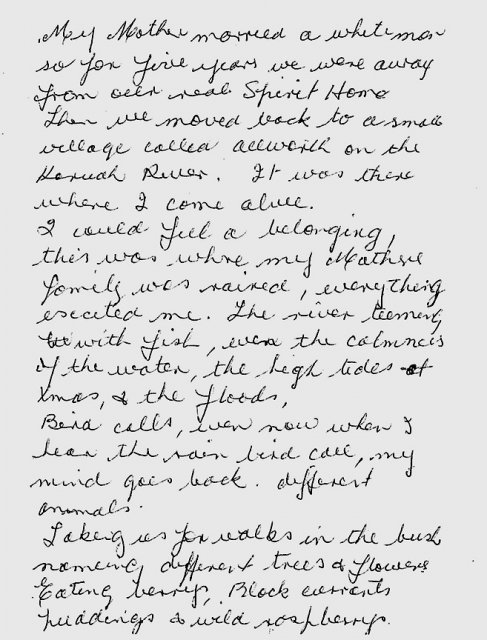 My Mother married a white man
so for five years we were away
from our real Spirit Home
Then we moved back to a small
village called allworth on the
Karuah River. It was there
where I come alive.
I could feel a belonging,
this was where my Mothers
family was raised, everything
excited me. The river teeming
with fish, even the calmness
of the water, the high tides at
Xmas, & the floods,
Bird calls, even now when I
hear the rain bird call, my
mind goes back. different
animals.
Taking us for walks in the bush
nameing different trees & flowers
Eating berrys, Black currants
puddings & wild raspberrys.